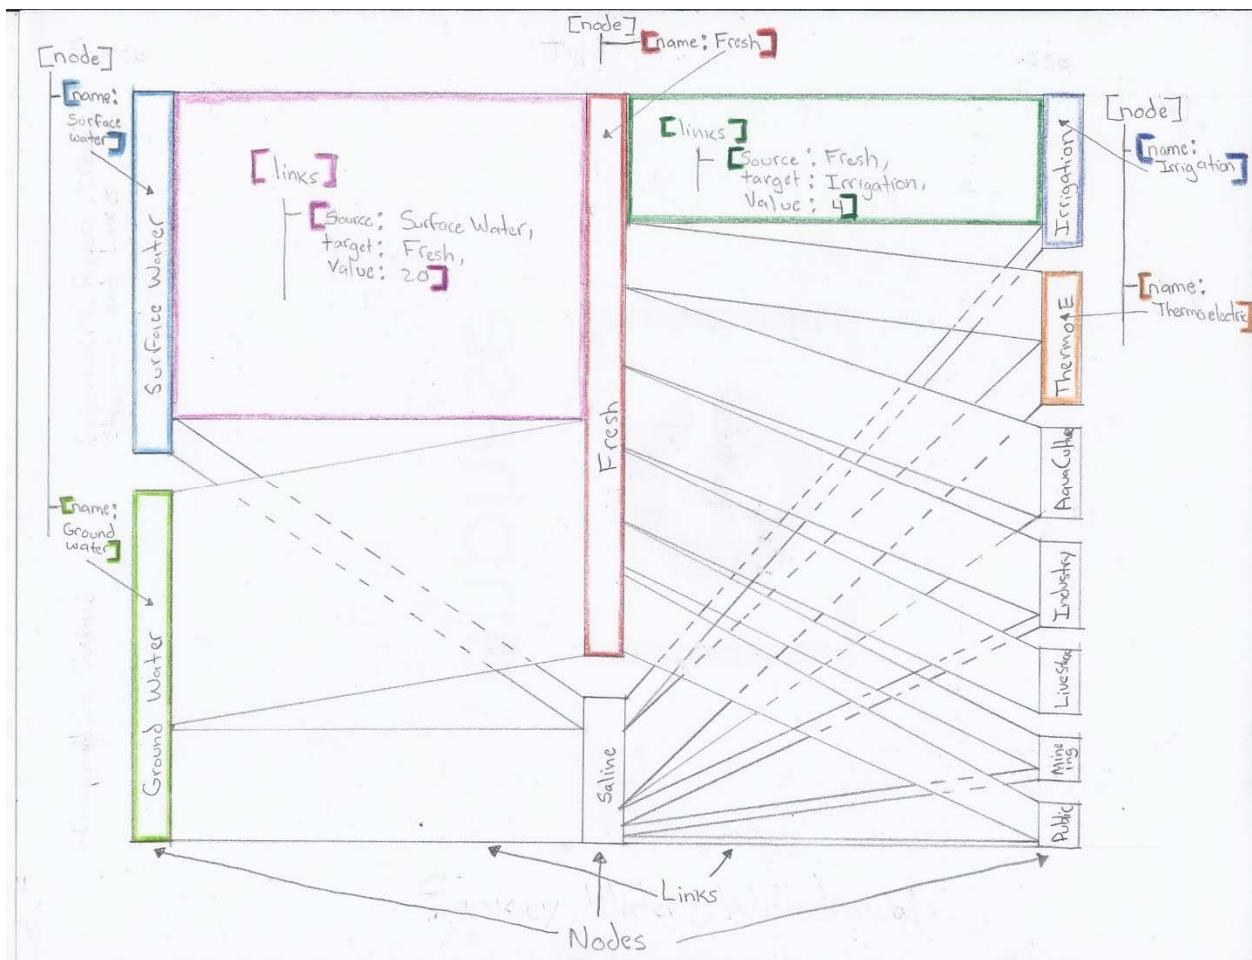 [node]
[name:
Surface
water]
Surface Water
[name:
Ground
water]
Ground Water
[links]
[Source: Surface Water,
target: Fresh,
Value: 20]
[node]
[name: Fresh]
Fresh
Saline
[links]
[Source: Fresh,
target: Irrigation,
Value: 4]
Irrigation
Thermo E
AquaCulture
Industry
LiveStock
Mine
ing
Public
[node]
[name:
Irrigation]
[name:
Thermoelectric]
Links
Nodes